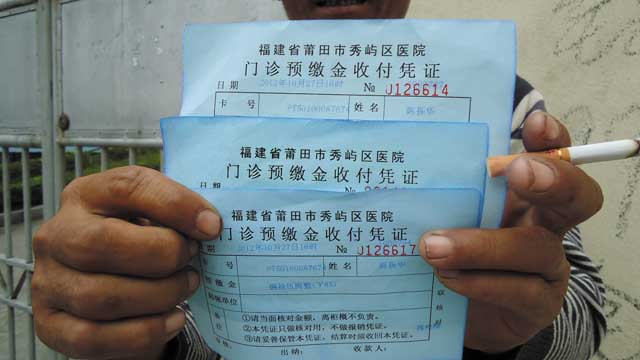 福建省莆田市秀屿区医院
门诊预缴金收付凭证
日期 2012年10月27日10时 № 0126614
卡号 PT501000A7674 姓名
福建省莆田市秀屿区医院
门诊预缴金收付凭证
福建省莆田市秀屿区医院
门诊预缴金收付凭证
2012年10月27日10时 № 0126617
卡号 姓名
预缴金
结账单位
备注 ①请当面核对金额，离柜概不负责。
②本凭证只做核对用，不做报销凭证。
③请妥善保管本凭证，结算时须收回本凭证。
收执联
出纳： 收款人：